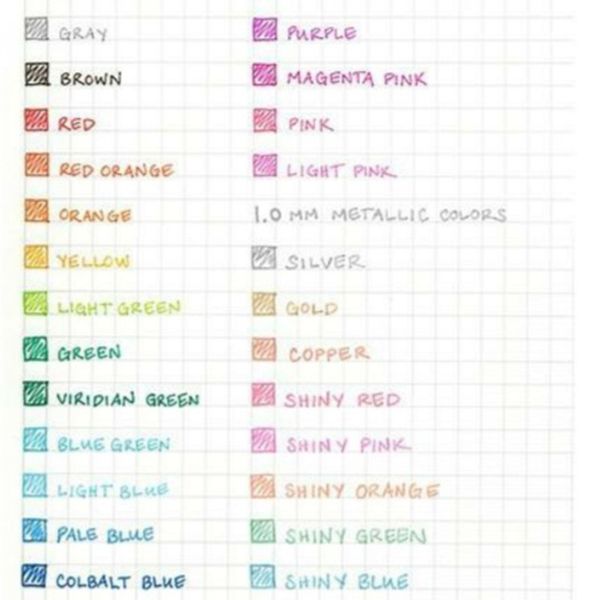 GRAY
BROWN
RED
RED ORANGE
ORANGE
YELLOW
LIGHT GREEN
GREEN
VIRIDIAN GREEN
BLUE GREEN
LIGHT BLUE
PALE BLUE
COLBALT BLUE
PURPLE
MAGENTA PINK
PINK
LIGHT PINK
1.0 MM METALLIC COLORS
SILVER
GOLD
COPPER
SHINY RED
SHINY PINK
SHINY ORANGE
SHINY GREEN
SHINY BLUE